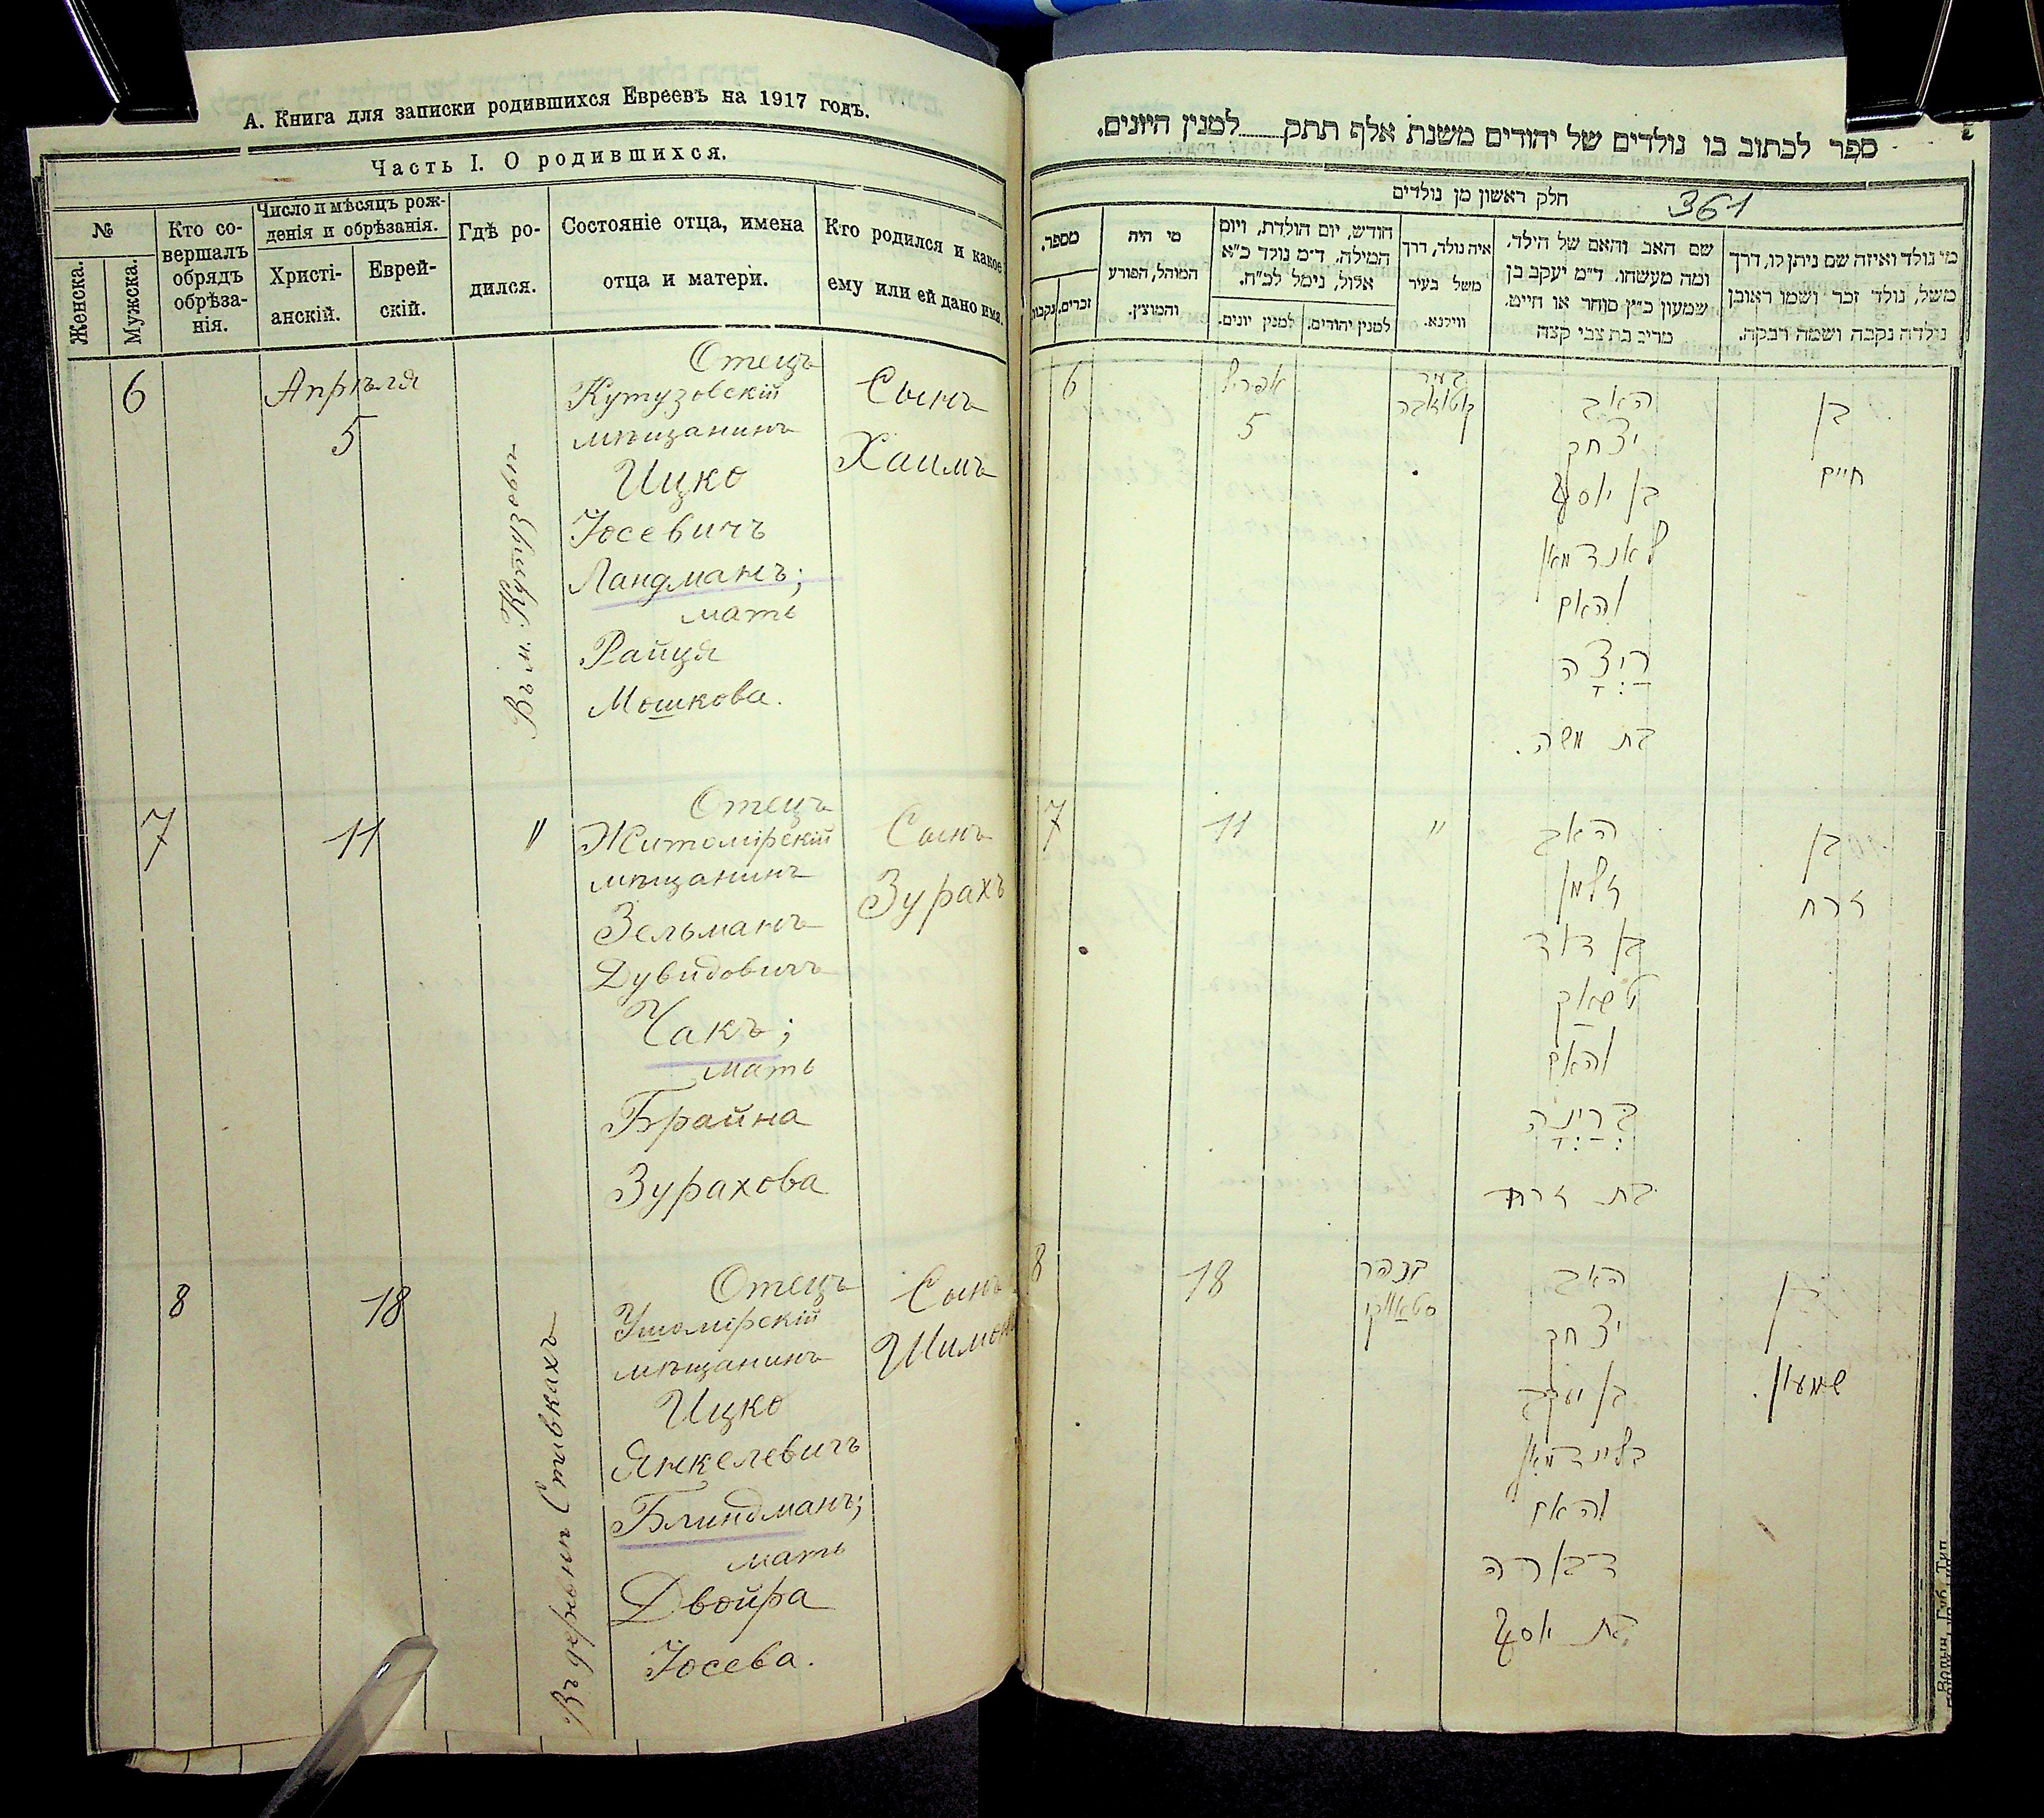 А. Книга для записки родившихся Евреевъ на 1917 годъ.
Часть I. О родившихся.
№
Женска.
Мужска.
Кто со-
вершалъ
обрядъ
обрѣза-
нія.
Число и мѣсяцъ рож-
денія и обрѣзанія.
Христі-
анскій.
Еврей-
скій.
Гдѣ ро-
дился.
Состояніе отца, имена
отца и матери.
Кто родился и какое
ему или ей дано имя.
6
Апрѣля
5
Отецъ
Кутузовскій
мѣщанинъ
Ицко
Юсевичъ
Ландманъ;
мать
Райця
Мошкова.
Сынъ
Хаимъ
7
11
"
Отецъ
Житомірскій
мѣщанинъ
Зельманъ
Дувидовичъ
Чакъ;
мать
Брайна
Зурахова
Сынъ
Зурахъ
8
18
Въ деревнѣ Ставкахъ
Отецъ
Ушомірскій
мѣщанинъ
Ицко
Янкелевичъ
Блиндманъ;
мать
Двойра
Юсева.
Сынъ
Шимонъ
ספר לכתוב בו נולדים של יהודים משנת אלף תתק למנין היונים.
חלק ראשון מן נולדים
361
מספר.
זכרים.
נקבות
מי היה
המוהל, הפורע
והמוצץ.
חודש, יום הולדת, ויום
המילה. ד"מ נולד כ"א
אלול, נימל לכ"ח.
למנין יונים.
למנין יהודים.
איה נולד, דרך
משל בעיר
ווילנא.
שם האב והאם של הילד,
ומה מעשהו. ד"מ יעקב בן
שמעון כ"ץ סוחר או חייט.
מרים בת צבי קצה
מי נולד ואיזה שם ניתן לו, דרך
משל, נולד זכר ושמו ראובן
נולדה נקבה ושמה רבקה.
6
אפריל
5
בעיר
האב
יצחק
בן יוסף
לאנדמאן
והאם
רַיְצָה
בת משה.
בן
חיים
7
11
"
האב
זלמן
בן דוד
טשאק
והאם
בְּרַיְנָה
בת זרח
בן
זרח
8
18
בכפר
סטאווקי
האב
יצחק
בן יעקב
בלינדמאן
והאם
דבורה
בת יוסף
בן
שמעון.